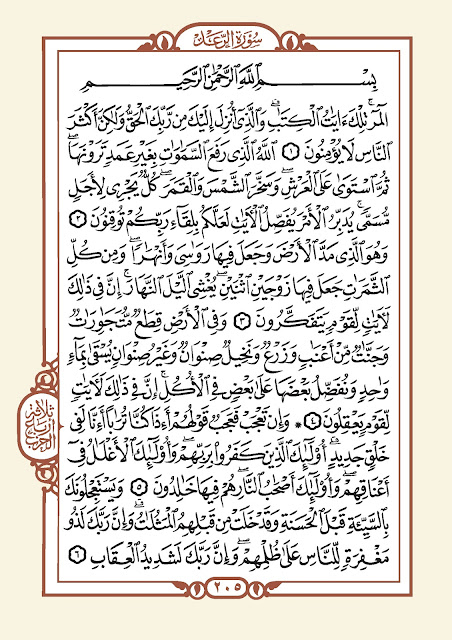 سُورَةُ الرَّعْدِ
بِسْمِ اللَّهِ الرَّحْمَٰنِ الرَّحِيمِ
الٓمٓرۚ تِلْكَ ءَايَٰتُ الْكِتَٰبِۗ وَالَّذِىٓ أُنزِلَ إِلَيْكَ مِن رَّبِّكَ الْحَقُّ وَلَٰكِنَّ أَكْثَرَ
النَّاسِ لَا يُؤْمِنُونَ ١ اللَّهُ الَّذِى رَفَعَ السَّمَٰوَٰتِ بِغَيْرِ عَمَدٍ تَرَوْنَهَاۖ
ثُمَّ اسْتَوَىٰ عَلَى الْعَرْشِۖ وَسَخَّرَ الشَّمْسَ وَالْقَمَرَۖ كُلٌّ يَجْرِى لِأَجَلٍ
مُّسَمًّىۚ يُدَبِّرُ الْأَمْرَ يُفَصِّلُ الْأَيَٰتِ لَعَلَّكُم بِلِقَآءِ رَبِّكُمْ تُوقِنُونَ ٢
وَهُوَ الَّذِى مَدَّ الْأَرْضَ وَجَعَلَ فِيهَا رَوَٰسِىَ وَأَنْهَٰرًاۖ وَمِن كُلِّ
الثَّمَرَٰتِ جَعَلَ فِيهَا زَوْجَيْنِ اثْنَيْنِۖ يُغْشِى الَّيْلَ النَّهَارَۚ إِنَّ فِى ذَٰلِكَ
لَأَيَٰتٍ لِّقَوْمٍ يَتَفَكَّرُونَ ٣ وَفِى الْأَرْضِ قِطَعٌ مُّتَجَٰوِرَٰتٌ
وَجَنَّٰتٌ مِّنْ أَعْنَٰبٍ وَزَرْعٌ وَنَخِيلٌ صِنْوَانٌ وَغَيْرُ صِنْوَانٍ يُسْقَىٰ بِمَآءٍ
وَٰحِدٍ وَنُفَضِّلُ بَعْضَهَا عَلَىٰ بَعْضٍ فِى الْأُكُلِۚ إِنَّ فِى ذَٰلِكَ لَأَيَٰتٍ
لِّقَوْمٍ يَعْقِلُونَ ٤ ۞ وَإِن تَعْجَبْ فَعَجَبٌ قَوْلُهُمْ أَءِذَا كُنَّا تُرَٰبًا أَءِنَّا لَفِى
خَلْقٍ جَدِيدٍۗ أُو۟لَٰٓئِكَ الَّذِينَ كَفَرُوا۟ بِرَبِّهِمْۖ وَأُو۟لَٰٓئِكَ الْأَغْلَٰلُ فِىٓ
أَعْنَاقِهِمْۖ وَأُو۟لَٰٓئِكَ أَصْحَٰبُ النَّارِۖ هُمْ فِيهَا خَٰلِدُونَ ٥ وَيَسْتَعْجِلُونَكَ
بِالسَّيِّئَةِ قَبْلَ الْحَسَنَةِ وَقَدْ خَلَتْ مِن قَبْلِهِمُ الْمَثُلَٰتُۗ وَإِنَّ رَبَّكَ لَذُو
مَغْفِرَةٍ لِّلنَّاسِ عَلَىٰ ظُلْمِهِمْۖ وَإِنَّ رَبَّكَ لَشَدِيدُ الْعِقَابِ ٦
ثلاثة
أرباع
الحزب
٢٠٥